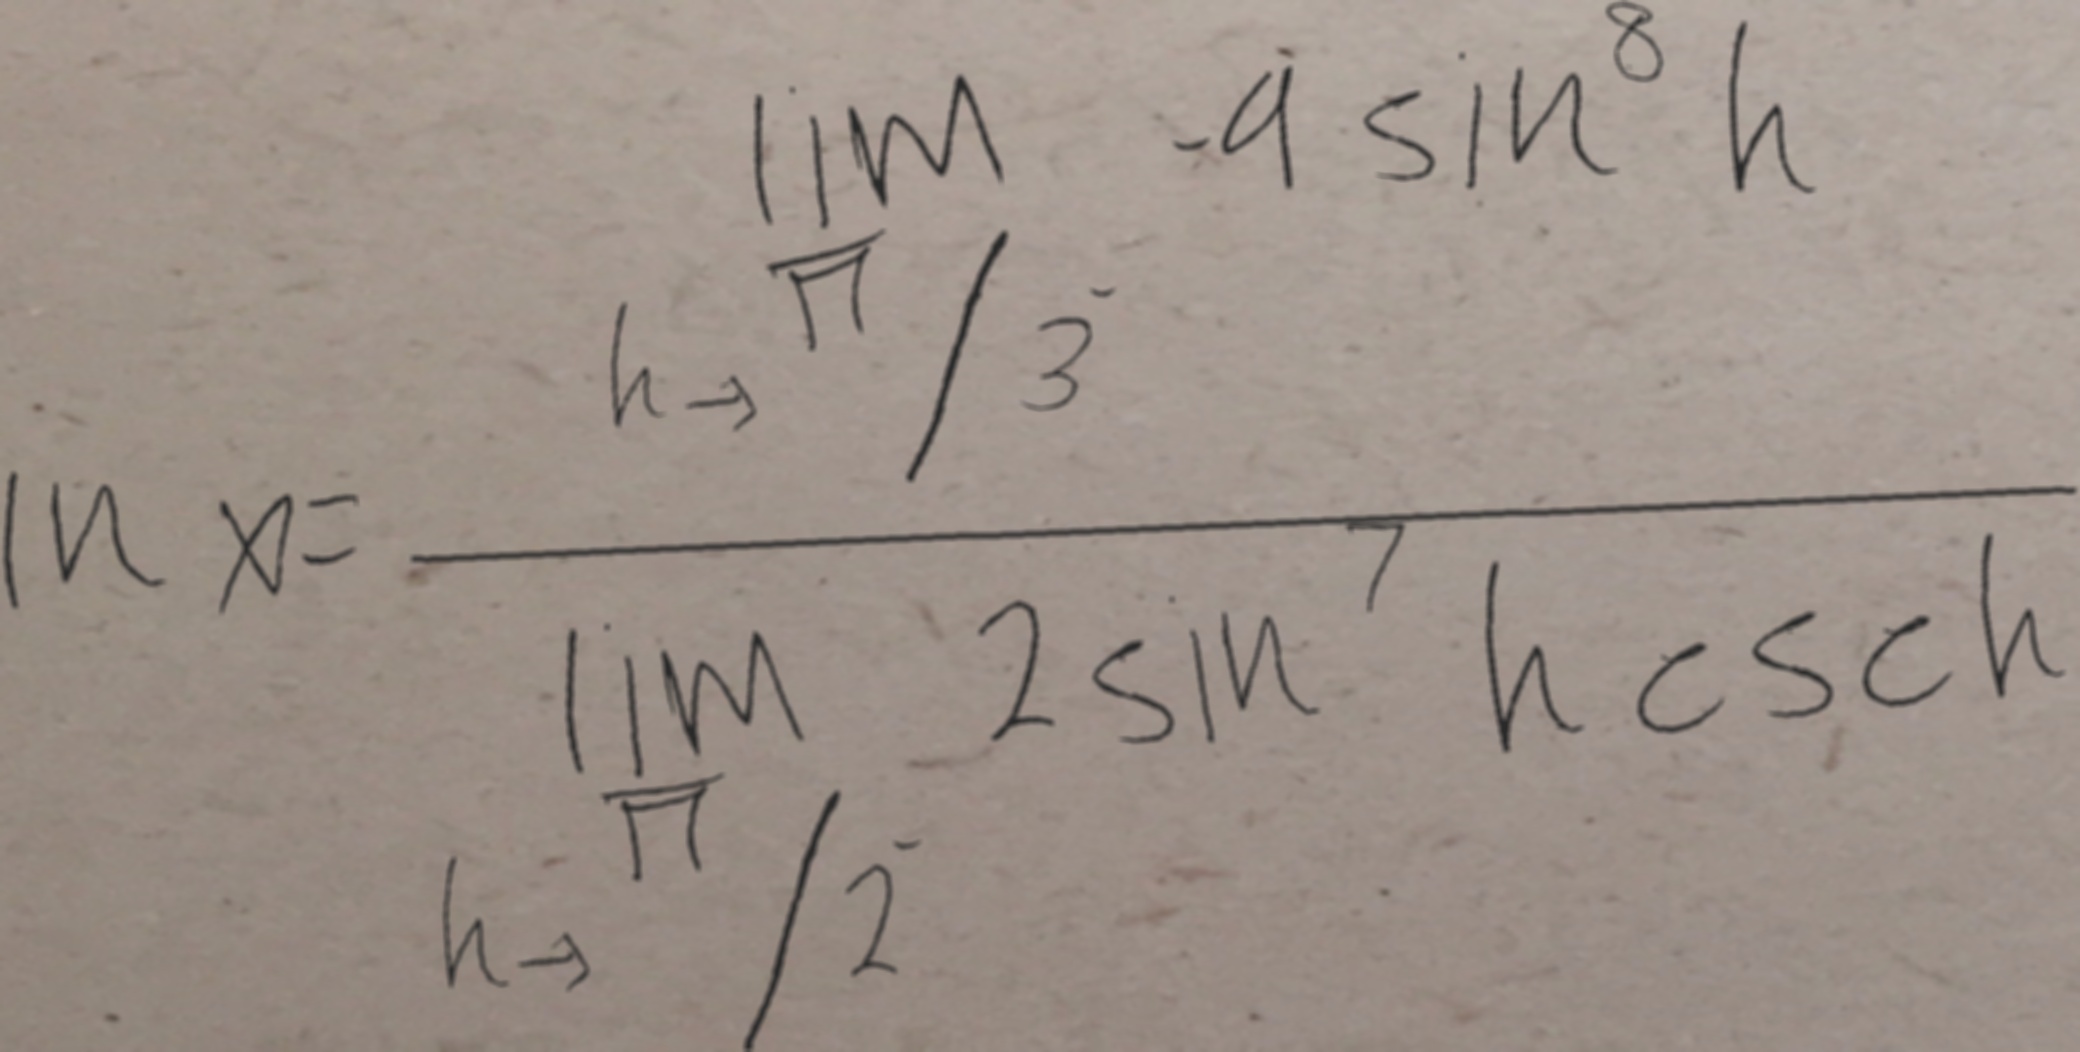 ln x = \frac{\lim_{h \to \pi/3^-} -9 \sin^8 h}{\lim_{h \to \pi/2^-} 2 \sin^7 h \csc h}